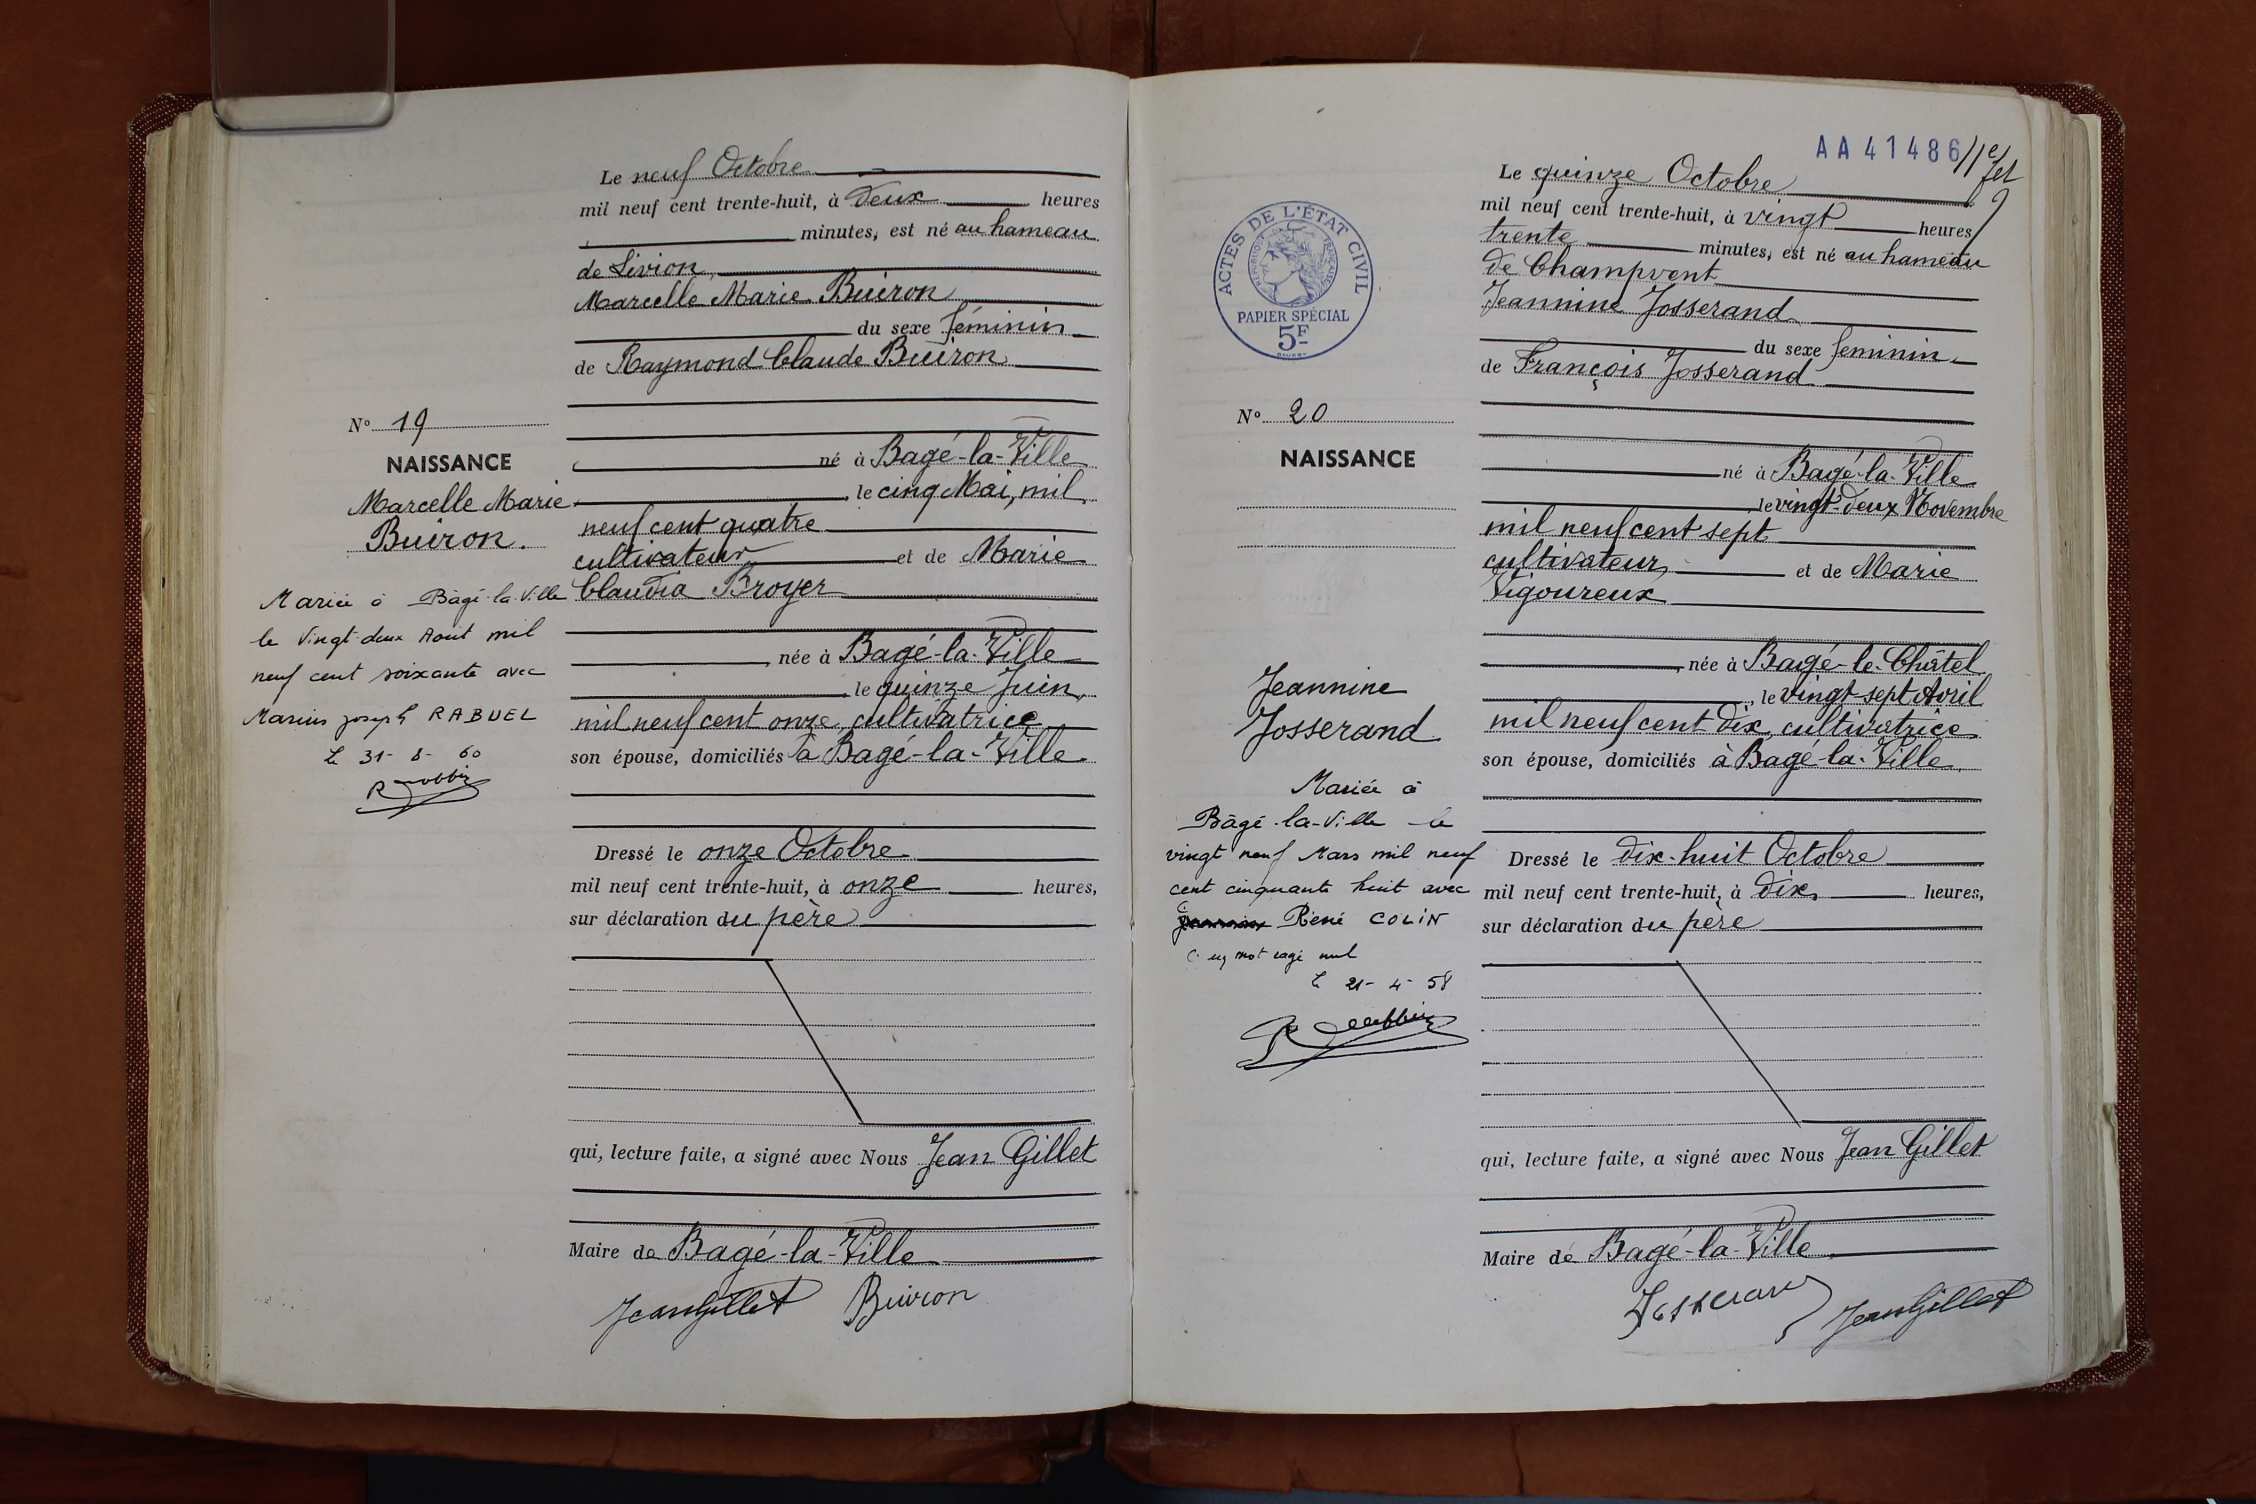 Le neuf Octobre
mil neuf cent trente-huit, à deux heures
minutes, est né au hameau
de Livion,
Marcelle Marie Buiron
du sexe féminin
de Raymond Claude Buiron
né à Bagé-la-Ville
le cinq Mai, mil
neuf cent quatre
cultivateur et de Marie
Claudia Broyer
née à Bagé-la-Ville
le quinze Juin,
mil neuf cent onze, cultivatrice
son épouse, domiciliés à Bagé-la-Ville
Dressé le onze Octobre
mil neuf cent trente-huit, à onze heures,
sur déclaration du père
qui, lecture faite, a signé avec Nous Jean Gillet
Maire de Bagé-la-Ville
Jean Gillet Buiron
N° 19
NAISSANCE
Marcelle Marie
Buiron.
Mariée à Bâgé-la-Ville
le vingt-deux Aout mil
neuf cent soixante avec
Marius Joseph RABUEL
L 31-8-60
AA41486
11e fet
Le quinze Octobre
mil neuf cent trente-huit, à vingt heures
trente minutes, est né au hameau
de Champvent
Jeannine Josserand
du sexe feminin
de François Josserand
né à Bagé-la-Ville
le vingt-deux Novembre
mil neuf cent sept
cultivateur, et de Marie
Vigoureux
née à Bagé-le-Châtel
, le vingt-sept Avril
mil neuf cent dix, cultivatrice
son épouse, domiciliés à Bagé-la-Ville
Dressé le dix-huit Octobre
mil neuf cent trente-huit, à dix heures,
sur déclaration du père
qui, lecture faite, a signé avec Nous Jean Gillet
Maire de Bagé-la-Ville
Josserand Jean Gillet
ACTES DE L'ÉTAT CIVIL
RÉPUBLIQUE FRANÇAISE
PAPIER SPÉCIAL
5F
N° 20
NAISSANCE
Jeannine
Josserand
Mariée à
Bâgé-la-Ville le
vingt neuf Mars mil neuf
cent cinquante huit avec
René COLIN
un mot rayé nul
L 21-4-58